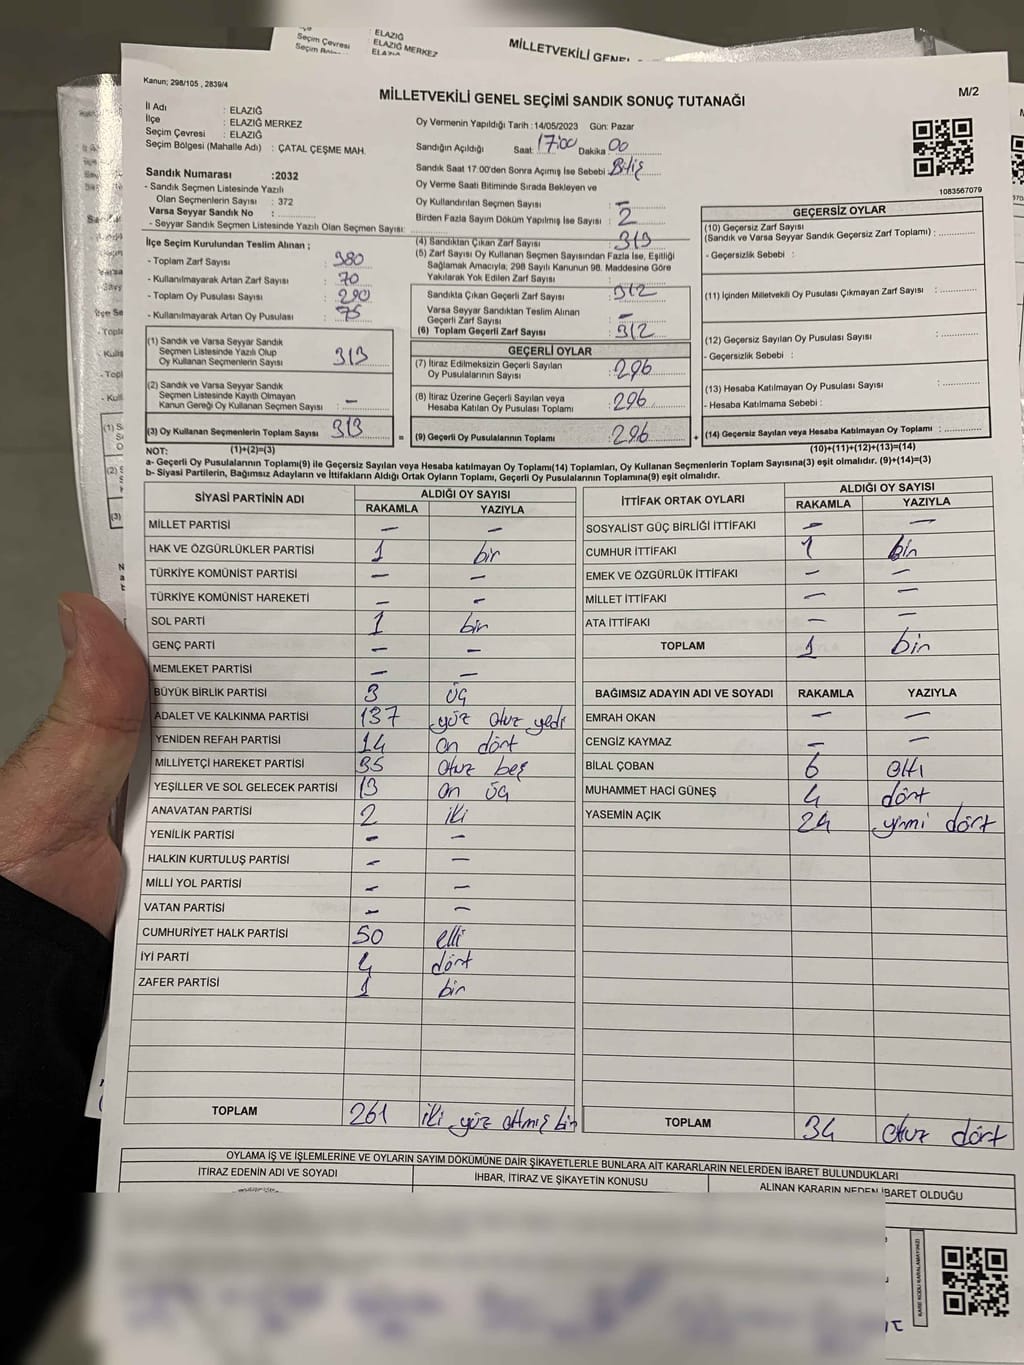 ELAZIĞ
Seçim Çevresi : ELAZIĞ MERKEZ
MİLLETVEKİLİ GENEL
Kanun; 298/105 , 2839/4
MİLLETVEKİLİ GENEL SEÇİMİ SANDIK SONUÇ TUTANAĞI
M/2
İl Adı : ELAZIĞ
İlçe : ELAZIĞ MERKEZ
Seçim Çevresi : ELAZIĞ
Seçim Bölgesi (Mahalle Adı) : ÇATAL ÇEŞME MAH.
Sandık Numarası :2032
- Sandık Seçmen Listesinde Yazılı
Olan Seçmenlerin Sayısı : 372
Varsa Seyyar Sandık No :
- Seyyar Sandık Seçmen Listesinde Yazılı Olan Seçmen Sayısı:
Oy Vermenin Yapıldığı Tarih :14/05/2023 Gün: Pazar
Sandığın Açıldığı Saat: 17:00 Dakika 00
Sandık Saat 17:00'den Sonra Açımış İse Sebebi :
Oy Verme Saati Bitiminde Sırada Bekleyen ve
Oy Kullandırılan Seçmen Sayısı : -
Birden Fazla Sayım Döküm Yapılmış İse Sayısı : 2
1083567079
İlçe Seçim Kurulundan Teslim Alınan ;
- Toplam Zarf Sayısı : 380
- Kullanılmayarak Artan Zarf Sayısı : 70
- Toplam Oy Pusulası Sayısı : 290
- Kullanılmayarak Artan Oy Pusulası : 75
(1) Sandık ve Varsa Seyyar Sandık
Seçmen Listesinde Yazılı Olup
Oy Kullanan Seçmenlerin Sayısı 313
(2) Sandık ve Varsa Seyyar Sandık
Seçmen Listesinde Kayıtlı Olmayan
Kanun Gereği Oy Kullanan Seçmen Sayısı : -
(3) Oy Kullanan Seçmenlerin Toplam Sayısı 313 =
(4) Sandıktan Çıkan Zarf Sayısı : 313
(5) Zarf Sayısı Oy Kullanan Seçmen Sayısından Fazla İse, Eşitliği
Sağlamak Amacıyla; 298 Sayılı Kanunun 98. Maddesine Göre
Yakılarak Yok Edilen Zarf Sayısı :
Sandıkta Çıkan Geçerli Zarf Sayısı : 312
Varsa Seyyar Sandıktan Teslim Alınan
Geçerli Zarf Sayısı : -
(6) Toplam Geçerli Zarf Sayısı : 312
GEÇERLİ OYLAR
(7) İtiraz Edilmeksizin Geçerli Sayılan
Oy Pusulalarının Sayısı : 296
(8) İtiraz Üzerine Geçerli Sayılan veya
Hesaba Katılan Oy Pusulası Toplamı : 296
(9) Geçerli Oy Pusulalarının Toplamı : 296 +
GEÇERSİZ OYLAR
(10) Geçersiz Zarf Sayısı
(Sandık ve Varsa Seyyar Sandık Geçersiz Zarf Toplamı) :
- Geçersizlik Sebebi :
(11) İçinden Milletvekili Oy Pusulası Çıkmayan Zarf Sayısı :
(12) Geçersiz Sayılan Oy Pusulası Sayısı :
- Geçersizlik Sebebi :
(13) Hesaba Katılmayan Oy Pusulası Sayısı :
- Hesaba Katılmama Sebebi :
(14) Geçersiz Sayılan veya Hesaba Katılmayan Oy Toplamı :
NOT: (1)+(2)=(3) (10)+(11)+(12)+(13)=(14)
a- Geçerli Oy Pusulalarının Toplamı(9) ile Geçersiz Sayılan veya Hesaba katılmayan Oy Toplamı(14) Toplamları, Oy Kullanan Seçmenlerin Toplam Sayısına(3) eşit olmalıdır. (9)+(14)=(3)
b- Siyasi Partilerin, Bağımsız Adayların ve İttifakların Aldığı Ortak Oyların Toplamı, Geçerli Oy Pusulalarının Toplamına(9) eşit olmalıdır.
SİYASİ PARTİNİN ADI ALDIĞI OY SAYISI
RAKAMLA YAZIYLA
MİLLET PARTİSİ - -
HAK VE ÖZGÜRLÜKLER PARTİSİ 1 bir
TÜRKİYE KOMÜNİST PARTİSİ - -
TÜRKİYE KOMÜNİST HAREKETİ - -
SOL PARTİ 1 bir
GENÇ PARTİ - -
MEMLEKET PARTİSİ - -
BÜYÜK BİRLİK PARTİSİ 3 üç
ADALET VE KALKINMA PARTİSİ 137 yüz otuz yedi
YENİDEN REFAH PARTİSİ 14 on dört
MİLLİYETÇİ HAREKET PARTİSİ 35 otuz beş
YEŞİLLER VE SOL GELECEK PARTİSİ 13 on üç
ANAVATAN PARTİSİ 2 iki
YENİLİK PARTİSİ - -
HALKIN KURTULUŞ PARTİSİ - -
MİLLİ YOL PARTİSİ - -
VATAN PARTİSİ - -
CUMHURİYET HALK PARTİSİ 50 elli
İYİ PARTİ 4 dört
ZAFER PARTİSİ 1 bir
TOPLAM 261 iki yüz altmış bir
İTTİFAK ORTAK OYLARI ALDIĞI OY SAYISI
RAKAMLA YAZIYLA
SOSYALİST GÜÇ BİRLİĞİ İTTİFAKI - -
CUMHUR İTTİFAKI 1 bir
EMEK VE ÖZGÜRLÜK İTTİFAKI - -
MİLLET İTTİFAKI - -
ATA İTTİFAKI - -
TOPLAM 1 bir
BAĞIMSIZ ADAYIN ADI VE SOYADI RAKAMLA YAZIYLA
EMRAH OKAN - -
CENGİZ KAYMAZ - -
BİLAL ÇOBAN 6 altı
MUHAMMET HACİ GÜNEŞ 4 dört
YASEMİN AÇIK 24 yirmi dört
TOPLAM 34 otuz dört
OYLAMA İŞ VE İŞLEMLERİNE VE OYLARIN SAYIM DÖKÜMÜNE DAİR ŞİKAYETLERLE BUNLARA AİT KARARLARIN NELERDEN İBARET BULUNDUKLARI
İTİRAZ EDENİN ADI VE SOYADI İHBAR, İTİRAZ VE ŞİKAYETİN KONUSU ALINAN KARARIN NEDEN İBARET OLDUĞU
KARE KODU KARALAMAYINIZ!